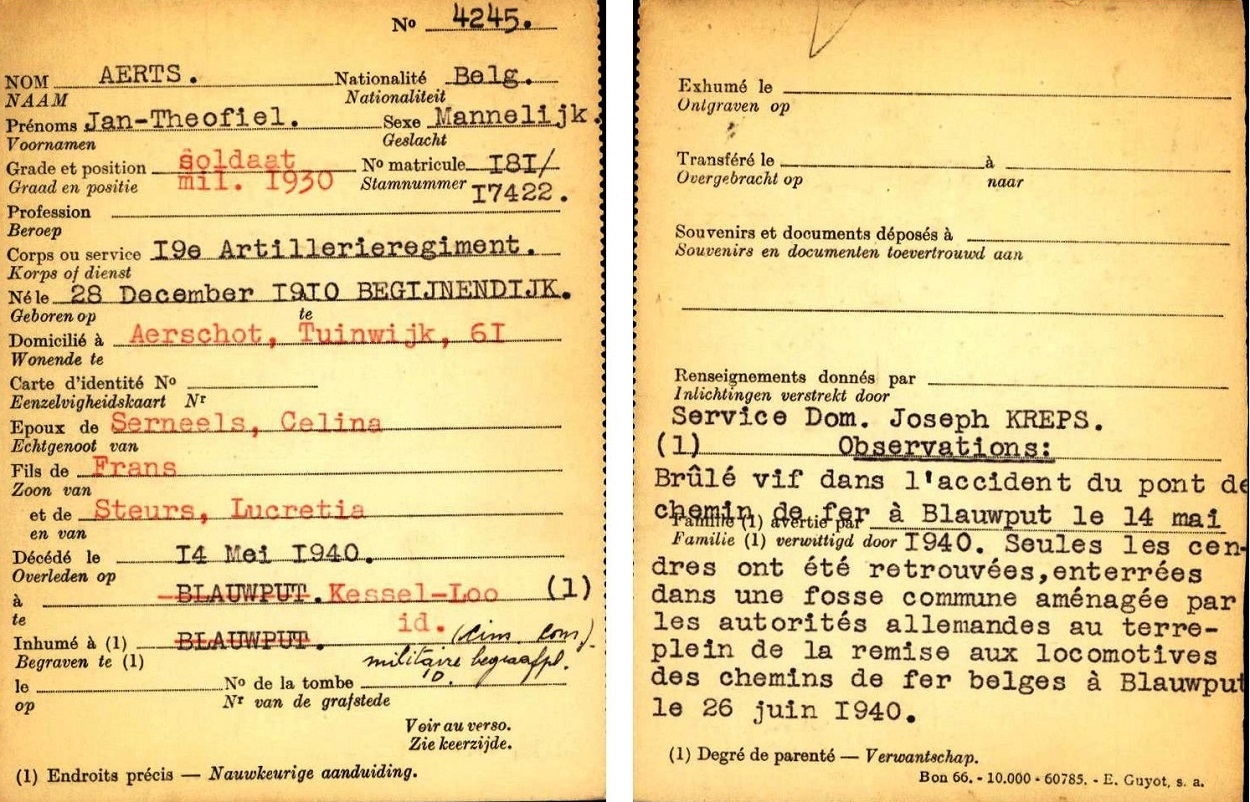 Nº 4245.
NOM AERTS. Nationalité Belg.
NAAM Nationaliteit
Prénoms Jan-Theofiel. Sexe Mannelijk.
Voornamen Geslacht
Grade et position soldaat Nº matricule I8I/
Graad en positie mil. I930 Stamnummer I7422.
Profession
Beroep
Corps ou service I9e Artillerieregiment.
Korps of dienst
Né le 28 December I9I0 BEGIJNENDIJK.
Geboren op te
Domicilié à Aerschot, Tuinwijk, 6I
Wonende te
Carte d'identité Nº
Eenzelvigheidskaart Nr
Epoux de Serneels, Celina
Echtgenoot van
Fils de Frans
Zoon van
et de Steurs, Lucretia
en van
Décédé le I4 Mei I940.
Overleden op
à BLAUWPUT. Kessel-Loo (1)
te
id.
Inhumé à (1) BLAUWPUT. (cim. com).
Begraven te (1) militaire begraafpl.
le Nº de la tombe 10.
op Nr van de grafstede
Voir au verso.
Zie keerzijde.
(1) Endroits précis — Nauwkeurige aanduiding.
Exhumé le
Ontgraven op
Transféré le à
Overgebracht op naar
Souvenirs et documents déposés à
Souvenirs en documenten toevertrouwd aan
Renseignements donnés par
Inlichtingen verstrekt door
Service Dom. Joseph KREPS.
(1) Observations:
Brûlé vif dans l'accident du pont de
chemin de fer à Blauwput le 14 mai
Famille (1) avertie par
Famille (1) verwittigd door I940. Seules les cen-
dres ont été retrouvées,enterrées
dans une fosse commune aménagée par
les autorités allemandes au terre-
plein de la remise aux locomotives
des chemins de fer belges à Blauwput
le 26 juin I940.
(1) Degré de parenté — Verwantschap.
Bon 66. - 10.000 - 60785. - E. Guyot, s. a.